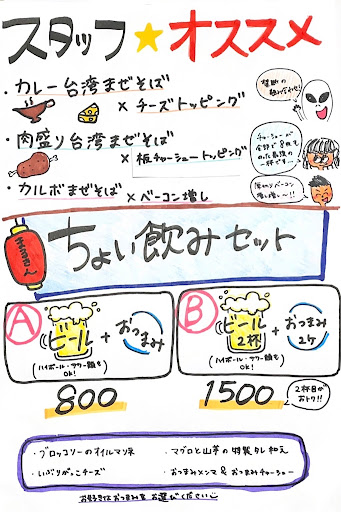 スタッフ★オススメ
・カレー台湾まぜそば
×チーズトッピング
・肉盛り台湾まぜそば
×板チャーシュートッピング
・カルボまぜそば×ベーコン増し
ちょい飲みセット
A
ビール+おつまみ
(ハイボール・サワー類もOK!)
800
B
ビール2杯+おつまみ2ケ
(ハイボール・サワー類もOK!)
1500
2杯目がおトク!!
・ブロッコリーのオイルマリネ
・マグロと山芋の特製タレ和え
・いぶりがっこチーズ
・おつまみメンマ&おつまみチャーシュー
お好きなおつまみをお選びください